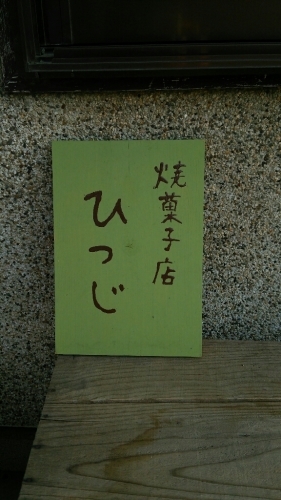 焼菓子店
ひつじ